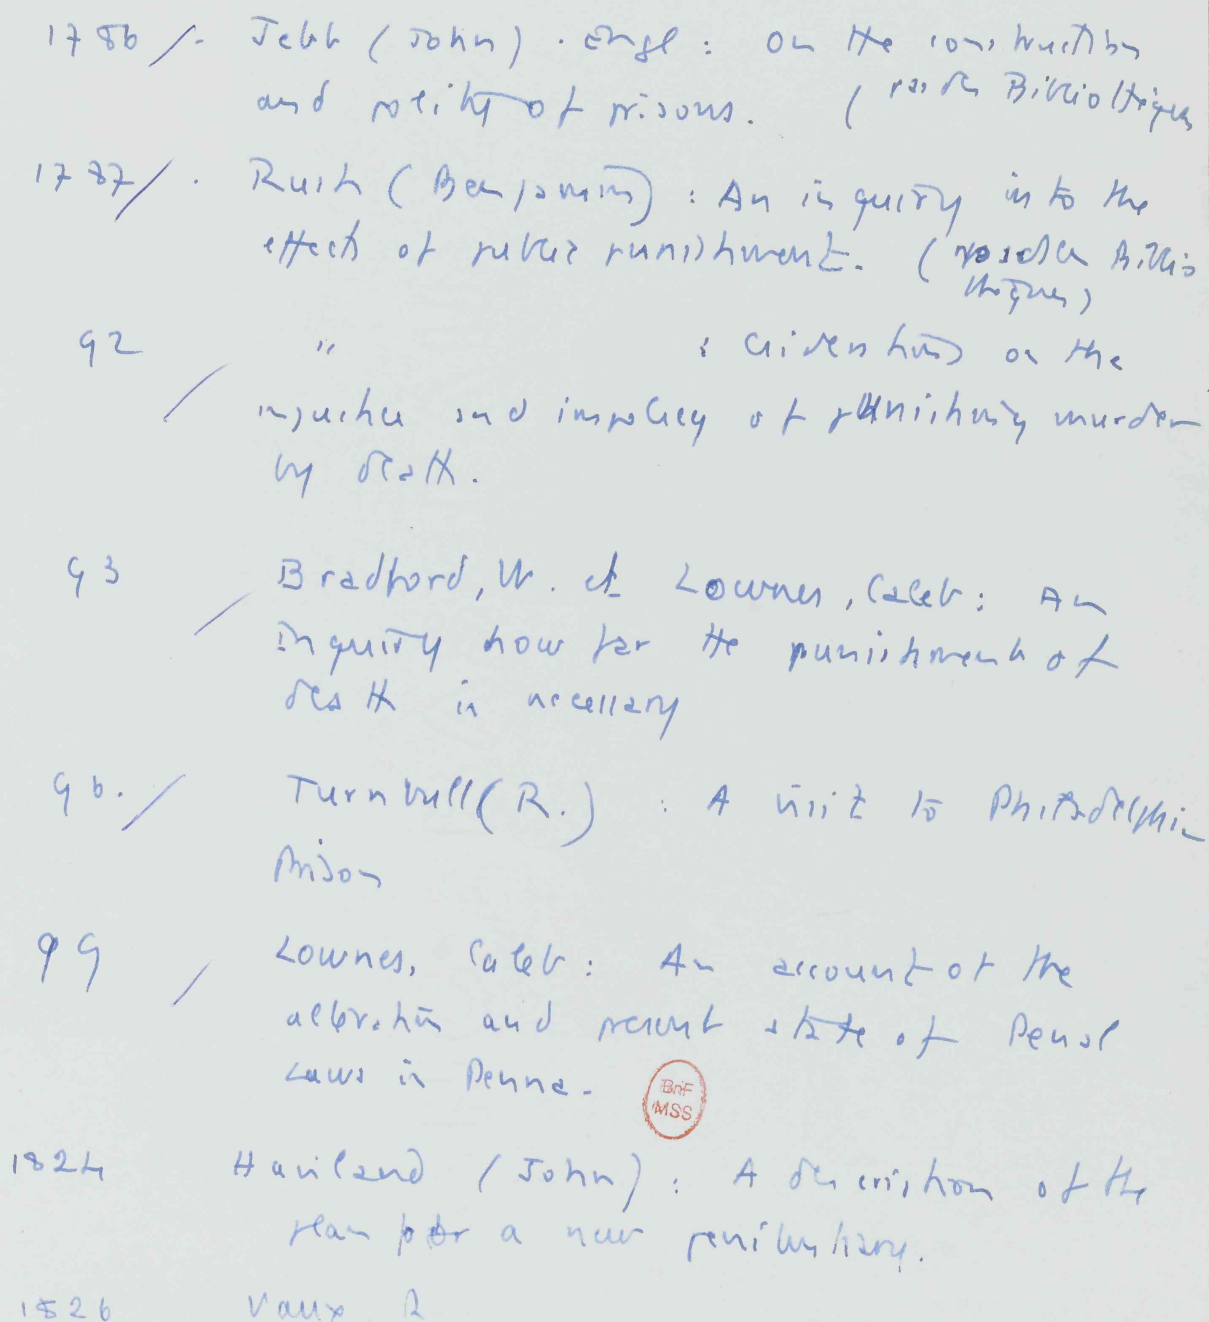 1786 /. Jebb (John). Engl : On the construction
and polity of prisons. (pas des Bibliothèques
1787 /. Rush (Benjamin) : An inquiry into the
effects of public punishment. ( Biblio
thèques)
92 / " : on the
injustice and impolicy of punishing murder
by death.
93 / Bradford, W. et Lownes, Caleb : An
Inquiry how far the punishment of
death is necessary
96. / Turnbull (R.) : A visit to Philadelphia
Prison
99 / Lownes, Caleb : An account of the
alteration and present state of Penal
Laws in Penna.
BnF
MSS
1824 Haviland (John) : A description of the
plan for a new penitentiary.
1826 Vaux R